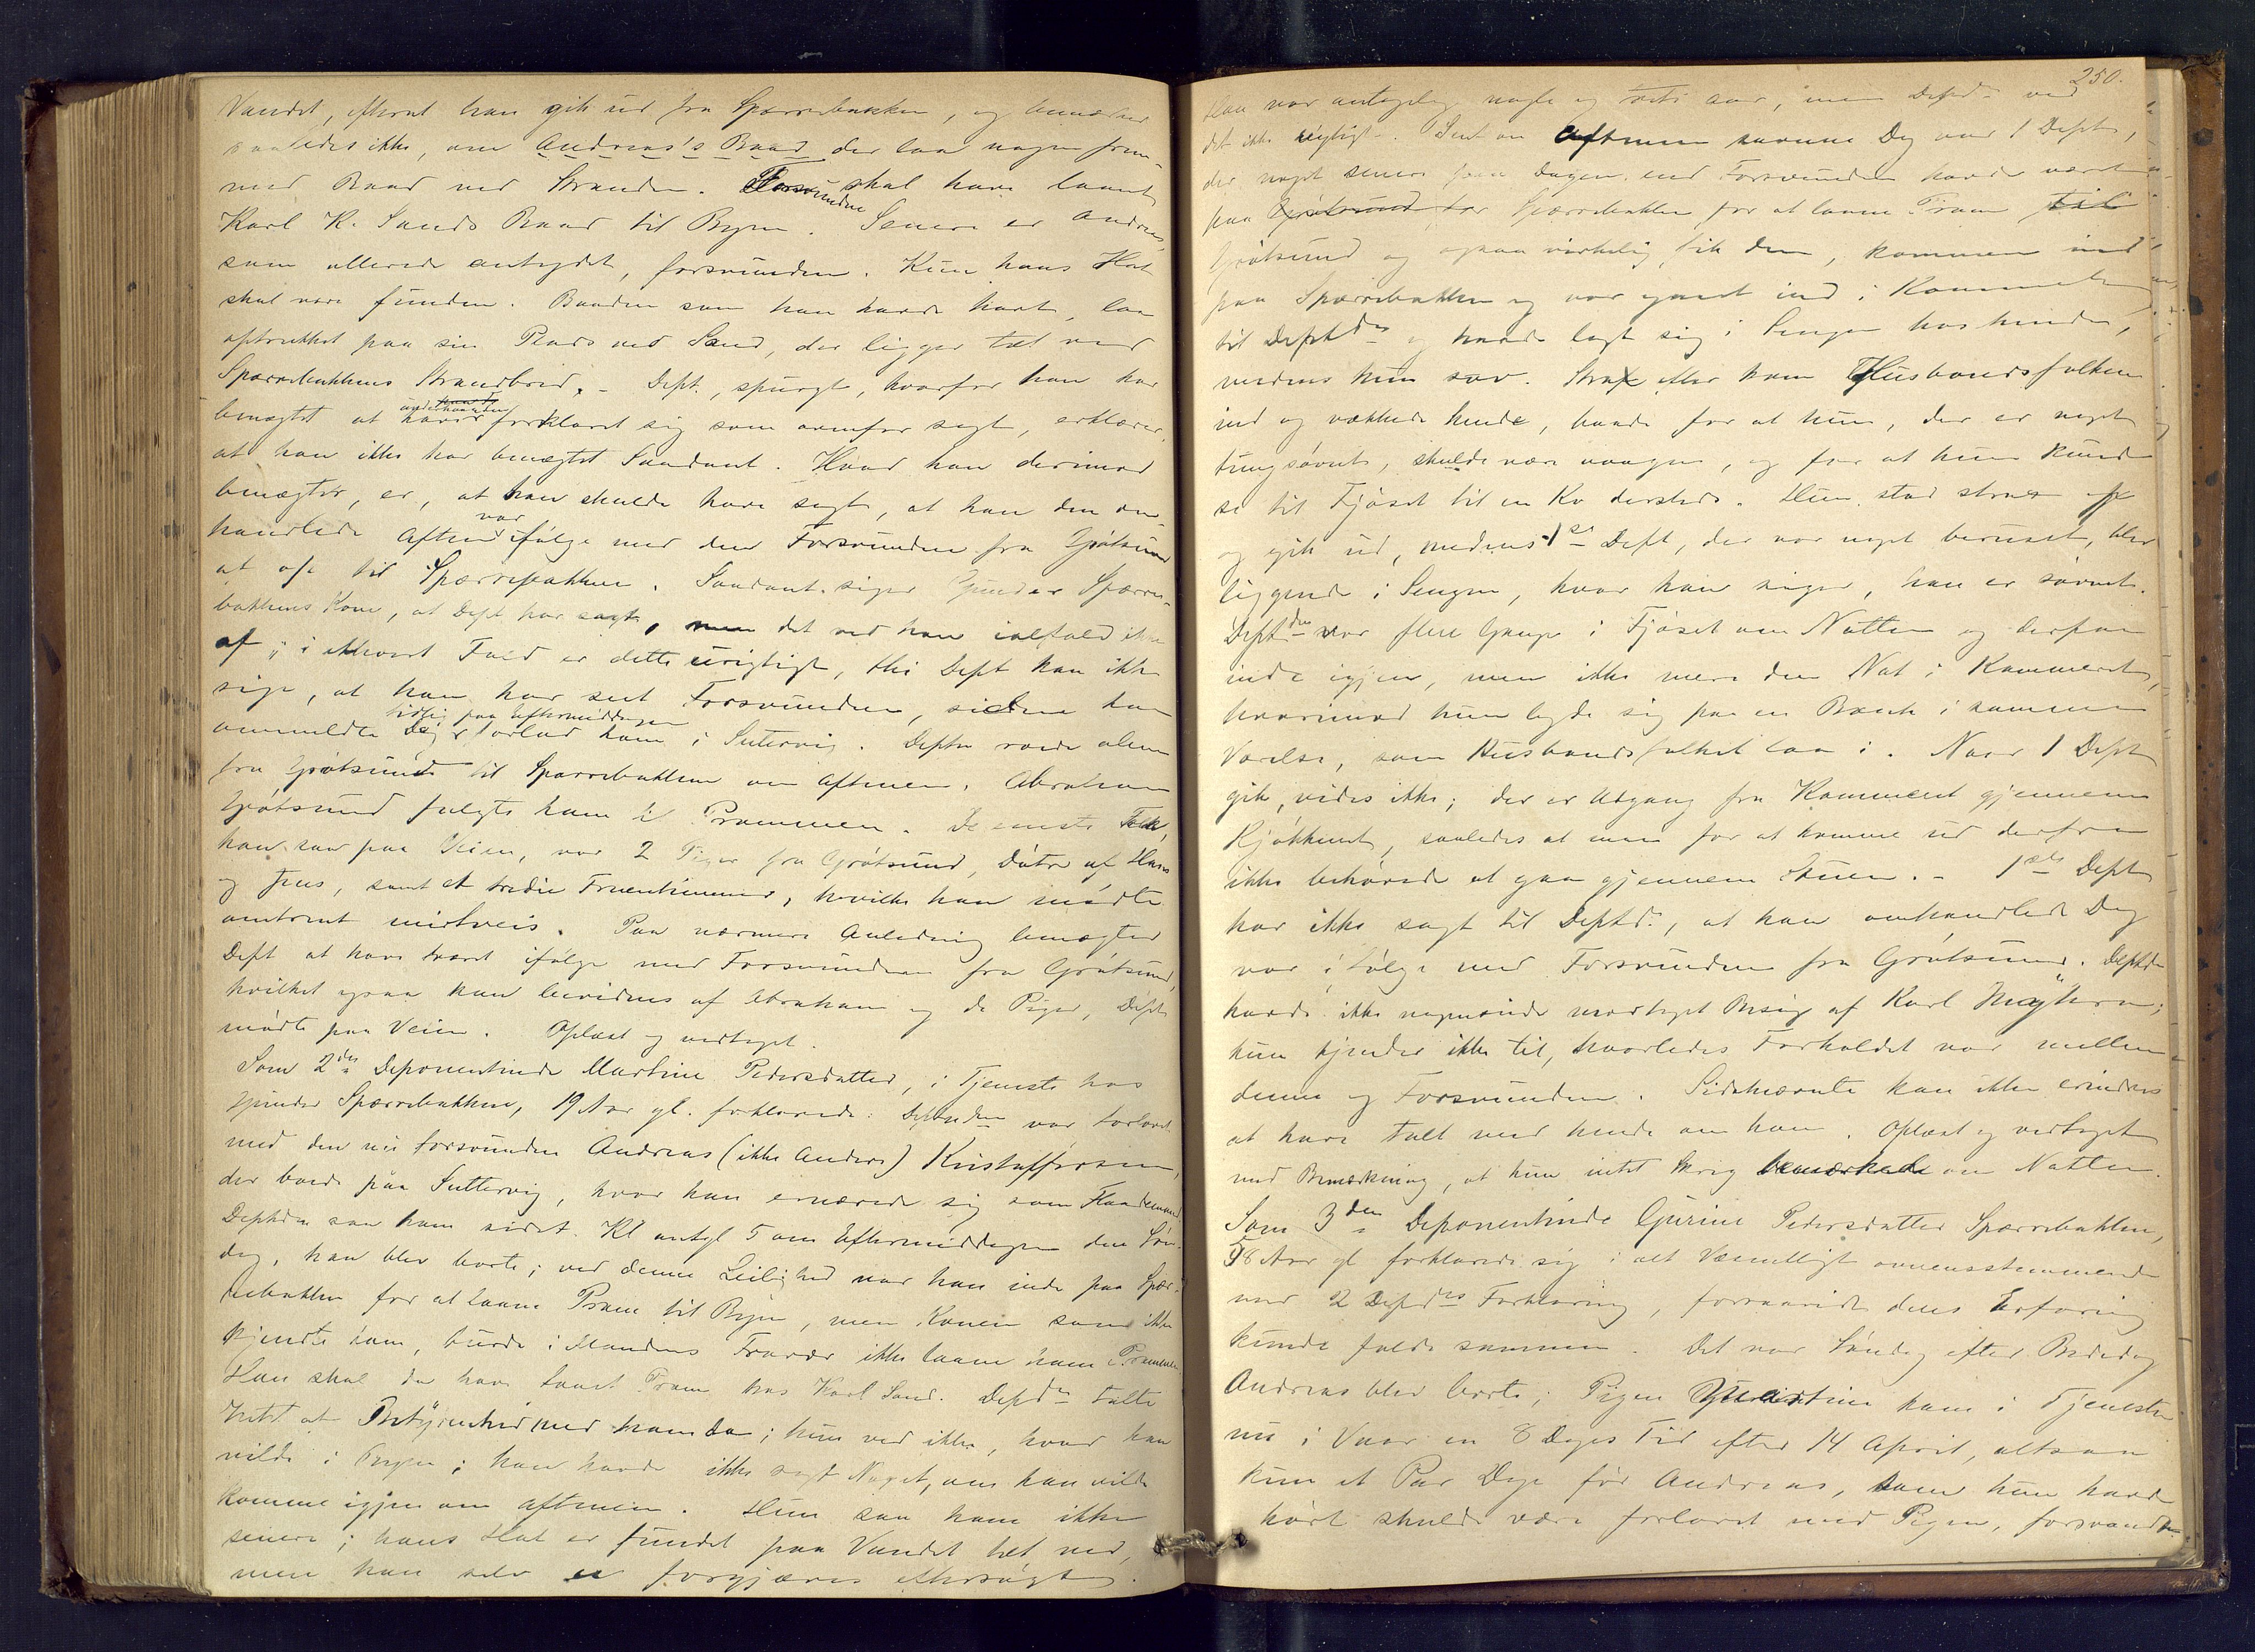 Vandet, efterat han gik ud fra Spærrebakken, og bemærkede
saaledes ikke, om Andreas's Baad der laa nogen frem-
med Baad ved Stranden. Forsvundne skal have laant
Karl K. Sands Baad til Byen. Senere er Andreas,
som allerede antydet, forsvunden. Kun hans Hat
skal være funden. Baaden som han havde havt, laa
optrukket paa sin Plads ved Sand, der ligger tæt ved
Spærrebakkens Strandbred. – Dept., spurgt, hvorfor han har
benægtet at have underhaanden forklaret sig som ovenfor sagt, erklærer,
at han ikke har benægtet Saadant. Hvad han derimod
benægter, er, at han skulde have sagt, at han den om-
handlede Aften var ifølge med den Forsvundne fra Grótsund
at og til Spærrebakken. Saadant siger Gunder Spærre-
bakkens Kone, at Dept har sagt, men det ved han ialfald ikke
af; i ethvert Fald er dette urigtigt, thi Dept kan ikke
sige, at han har seet Forsvundne, siden han
ommeldte Dag tidlig paa Eftermiddagen forlod ham i Suttervig. Depten roede alene
fra Grótsund til Spærrebakken om Aftenen. Abraham
Grótsund fulgte ham til Prammen. De eneste Folk,
han saa paa Veien, var 2 Piger fra Grótsund, Døtre af Hans
og Jens, samt et tredie Fruentimmer, hvilke han mødte
omtrent midtveis. Paa nærmere Anledning benægter
Dept at have været ifølge med Forsvundne fra Grótsund,
hvilket ogsaa kan bevidnes af Abraham og de Piger, Dept
mødte paa Veien. Oplæst og vedtaget.
Som 2den Deponentinde Martine Pedersdatter, i Tjeneste hos
Gunder Spærrebakken, 19 Aar gl. forklarede: Deptnden var forlovet
med den nu forsvundne Andreas (ikke Anders) Kristoffersen,
der boede paa Suttervig, hvor han ernærede sig som Haandværker.
Deptnden saa ham sidst. Kl antgl 5 om Eftermiddagen den Søn-
dag, han blev borte; ved denne Leilighed var han inde paa Spær-
rebakken for at laane Pram til Byen, men Konen som ikke
kjendte ham, turde i Mandens Fravær ikke laane ham Prammen.
Han skal da have laant Pram hos Karl Sand. Deptnden talte
Intet af Betydenhed med ham da; hun ved ikke, hvad han
vilde i Byen; han havde ikke sagt Noget, om han vilde
komme igjen om Aftenen. Hun saa ham ikke
senere; hans Hat er fundet paa Vandet tæt ved,
men han selv er forgjæves eftersøgt.
250.
Han var antagelig nogle og tyve aar, men Deptnd ved
det ikke nøiagtigt. Sent om Aftenen samme Dag var 1 Dept,
der noget senere paa Dagen end Forsvundne havde været
paa Spærrebakken for at laane Pram til
Grótsund og ogsaa virkelig fik den, kommen ind
paa Spærrebakken og var gaaet ind i Kammeret
til Deptnden og havde lagt sig i Sengen hos hende,
medens hun sov. Strax efter kom Husbondsfolkene
ind og vækkede hende, baade for at hun, der er noget
tungsøvnt, skulde være vaagen, og for at hun kunde
se til Fjøset til en Ko dersteds. Hun stod strax op
og gik ud, medens 1ste Dept, der var noget beruset, blev
liggende i Sengen, hvor han siger, han er sovnet.
Deptnden var flere Gange i Fjøset om Natten og derfra
inde igjen, men ikke mere den Nat i Kammeret,
hvorimod hun lagde sig paa en Bænk i samme
Værelse, som Husbondsfolket laa i. Naar 1 Dept
gik, vides ikke; der er Udgang fra Kammeret gjennem
Kjøkkenet, saaledes at man for at komme ud derfra
ikke behøvede at gaa gjennem Stuen. – 1ste Dept
har ikke sagt til Deptnd., at han omhandlede Dag
var i Følge med Forsvundne fra Grótsund. Deptnd
havde ikke nogensinde modtaget Besøg af Karl
hun kjender ikke til, hvorledes Forholdet var mellem
denne og Forsvundne. Sidstnævnte kan ikke erindres
at have talt med hende om ham. Oplæst og vedtaget
med Bemærkning, at hun intet Skrig bemærkede om Natten.
Som 3den Deponentinde Gurine Pedersdatter Spærrebakken,
58 Aar gl forklarede sig i alt Væsentligt overensstemmende
med 2 Deptndes Forklaring, forsaavidt dens Erfaring
kunde falde sammen. Det var Søndag efter Bededag
Andreas blev borte; Pigen Martine kom i Tjenesten
nu i Vaar en 8 Dages Tid efter 14 April, altsaa
kun et Par Dage før Andreas, som hun havde
hørt skulde være forlovet med Pigen, forsvandt.